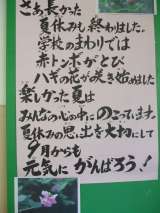 さあ長かった
夏休みも終わりました。
学校のまわりでは
赤トンボがとび
ハギの花が咲き始めました
楽しかった夏は
みんなの心の中にのこっています。
夏休みの思い出を大切にして
9月からも
元気にがんばろう!